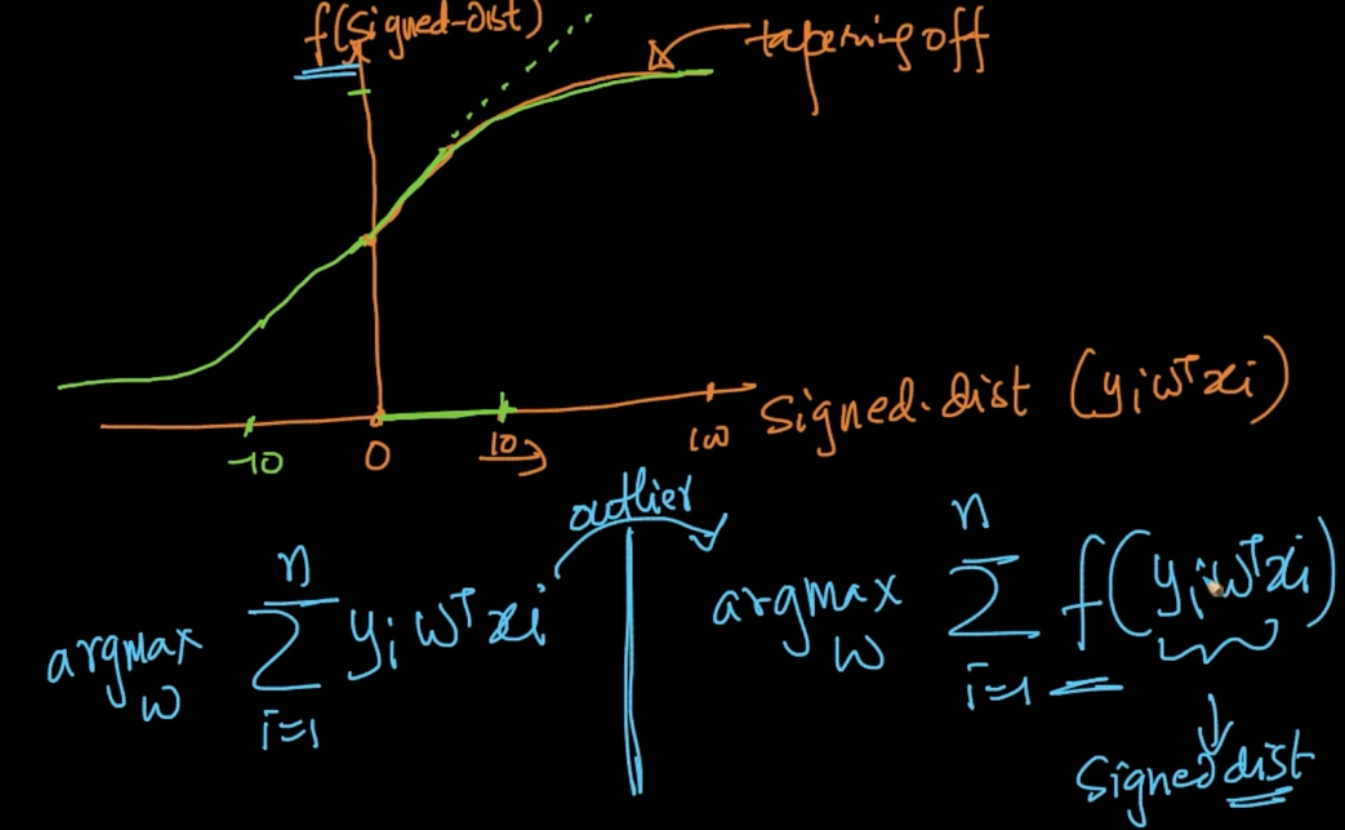 f(signed-dist)
tapering off
Signed.dist (yiwᵀxi)
-10 0 10 100
outlier
argmax w n Σ i=1 yi wᵀ xi
argmax w n Σ i=1 f(yiwᵀxi)
Signed dist